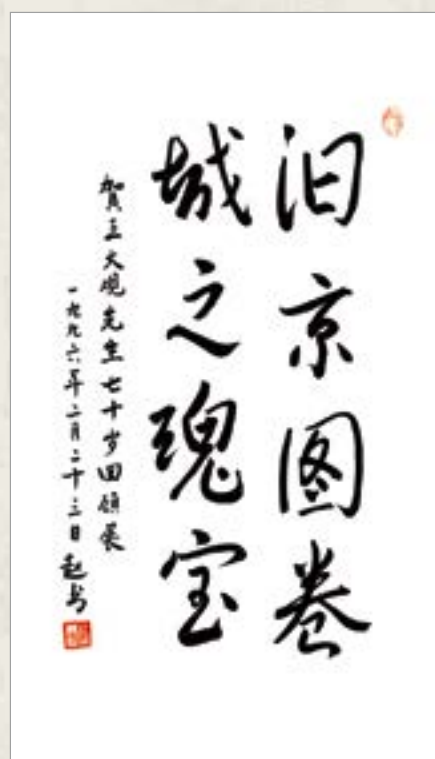 旧京图卷
城之瑰宝
賀王大观先生七十岁回顾展
一九九六年二月二十三日 赵书